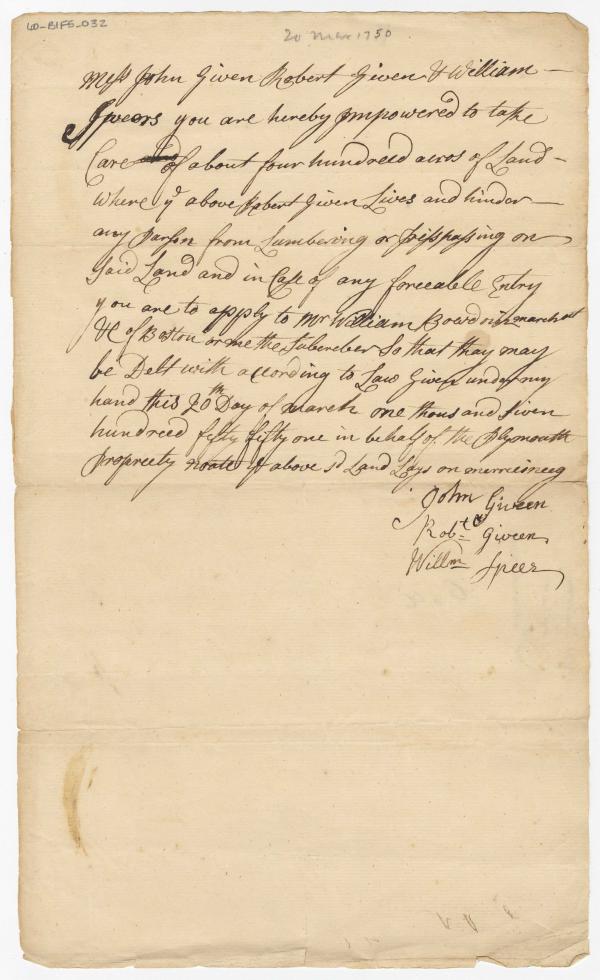 60-B1F5-032
20 Mar 1750
Mess John Given Robert Given & William
Speers you are hereby Impowered to take
Care of about four hundreed acros of Land
Where ye above Robert Given Lives and hinder
any Parson from Lumbering or Trisspassing on
Said Land and in Case of any forceable Entry
you are to apply to Mr William Bowdoin marchant
&C of Boston or me the Subcreber So that thay may
be Delt with according to Law Given under my
hand this 20th Day of march one thousand Siven
hundreed fifty fifty one in behalf of the Plymouth
Propreety noate ye above sd Land Lays on merrieneeg
John Giveen
Robt Giveen
Willm Speer